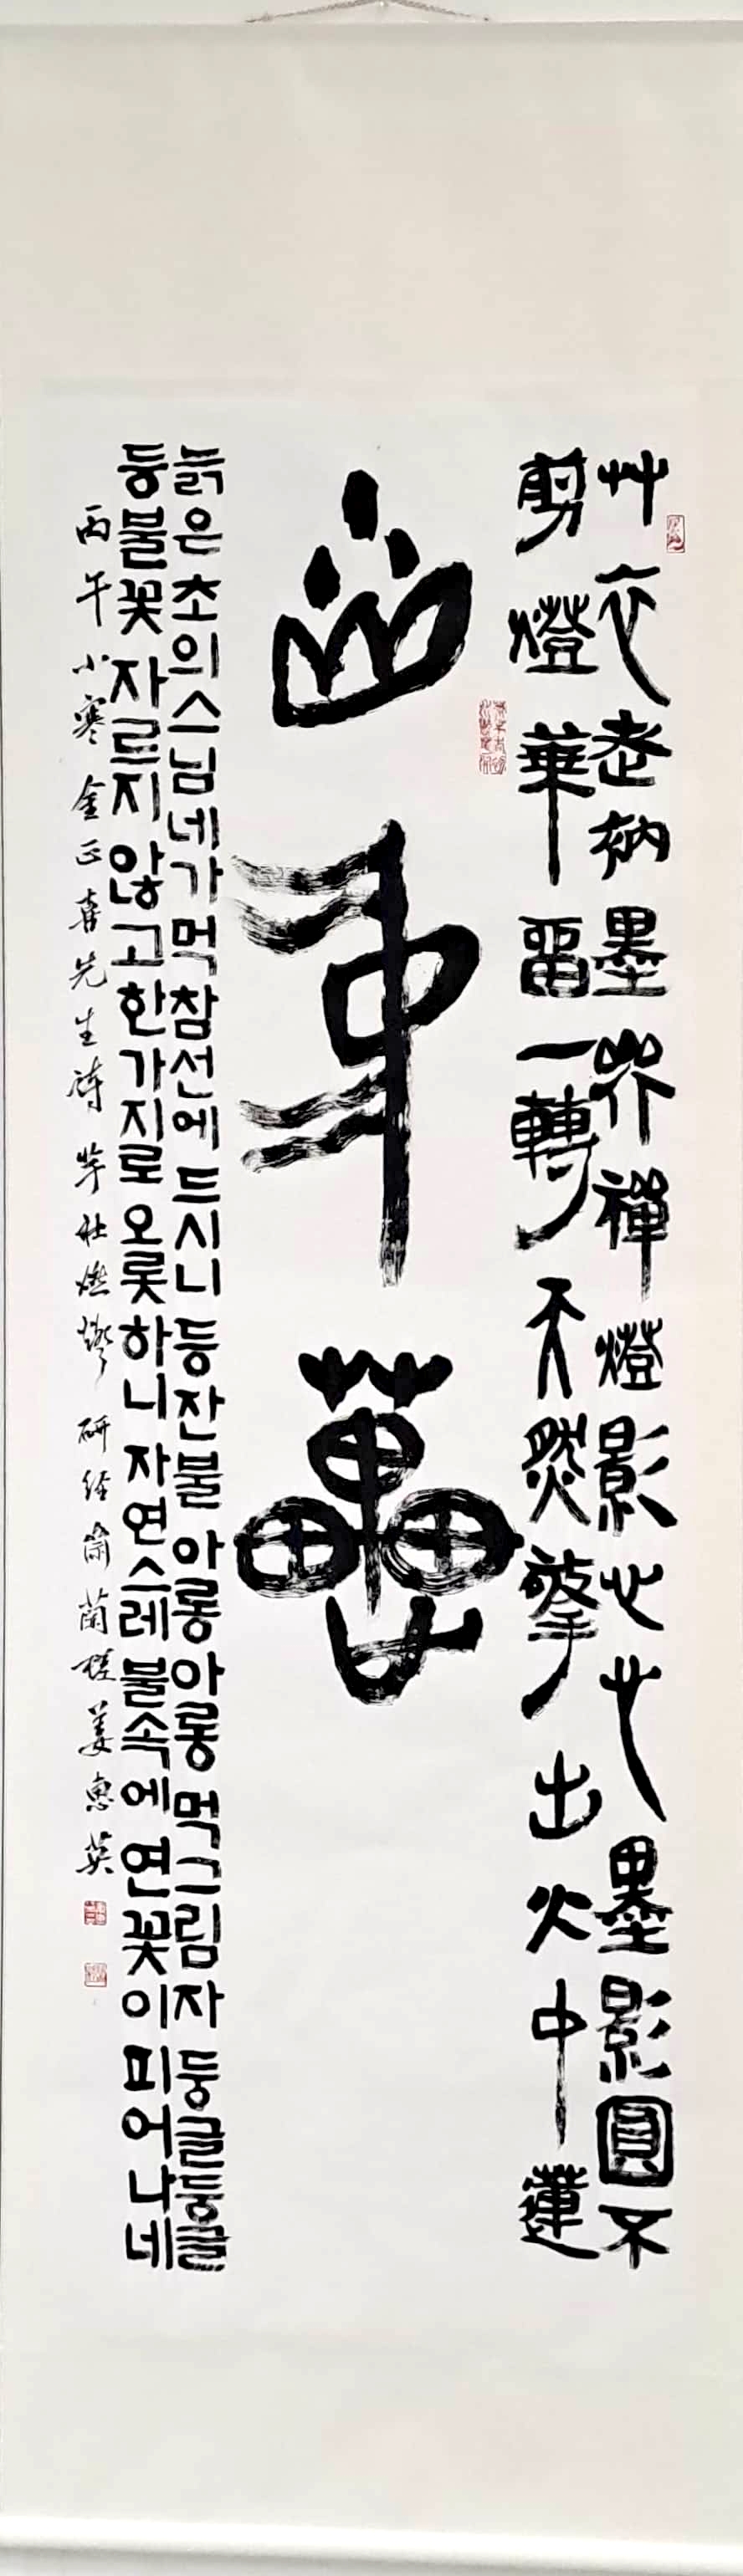 艸衣老衲墨參禪燈影心心墨影圓不
剪燈華留一轉天然擎出火中蓮
火中蓮
늙은 초의스님네가 먹참선에 드시니 등잔불 아롱아롱 먹그림자 둥글둥글
등불꽃 자르지 않고 한가지로 오롯하니 자연스레 불속에 연꽃이 피어나네
丙午小寒金正喜先生詩芋社燃燈 研經齋蘭姜惠英